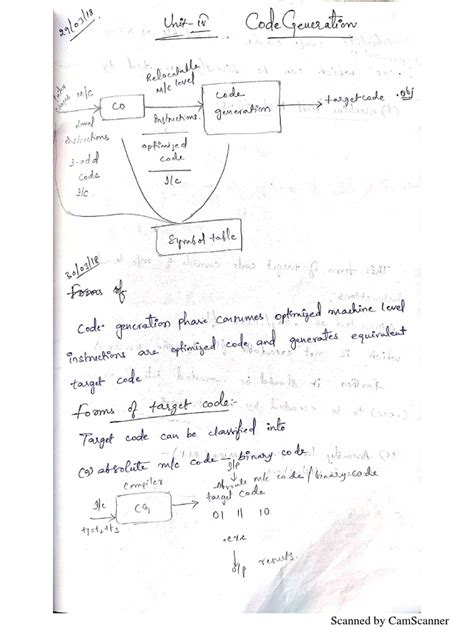 29/03/18
Unit-iv Code Generation
M/C
level
instructions
3-add
code
I/c
CO
Relocatable
M/c level
Instructions
optimized
code
I/c
code
generation
target code .obj
Symbol table
30/03/18
Forms of
Code generation phase consumes optimized machine level
instructions are optimized code and generates equivalent
target code
Forms of target code:-
Target code can be classified into
(a) absolute m/c code - binary code
Compiler
I/c
CG
t1=t2+t3
I/p
Absolute m/c code / binary code
target code
01 11 10
.exe
o/p results.
Scanned by CamScanner